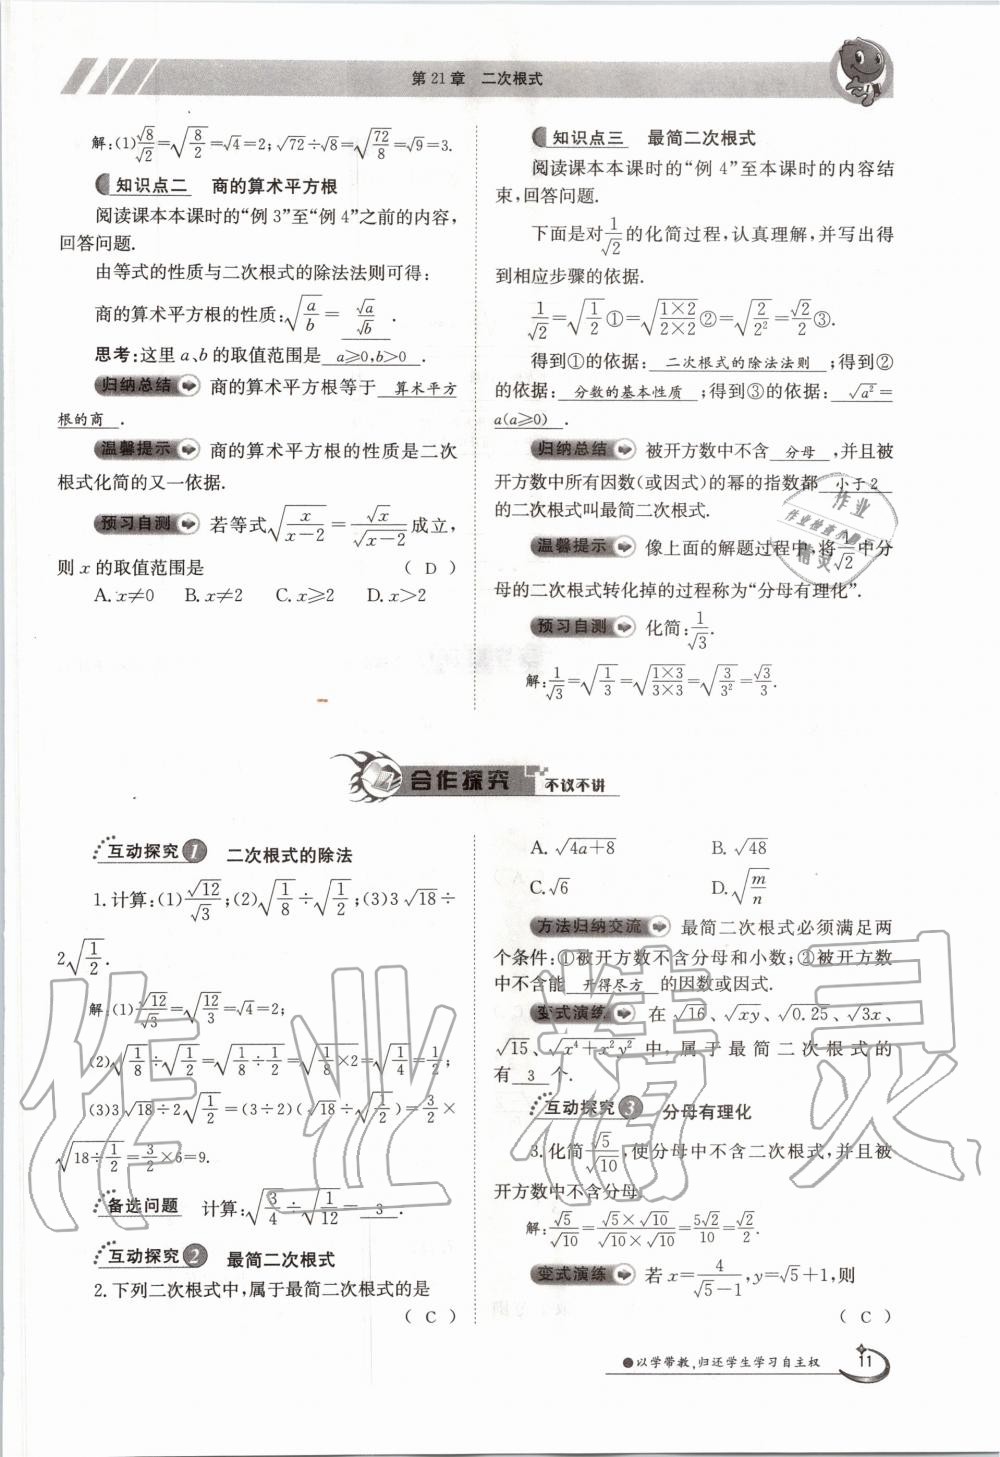 第21章 二次根式
解:(1)√8/√2=√(8/2)=√4=2; √72÷√8=√(72/8)=√9=3.
知识点二 商的算术平方根
阅读课本本课时的“例3”至“例4”之前的内容,
回答问题.
由等式的性质与二次根式的除法法则可得:
商的算术平方根的性质:√(a/b)= √a/√b .
思考:这里a、b的取值范围是 a≥0,b>0 .
归纳总结 商的算术平方根等于 算术平方
根的商 .
温馨提示 商的算术平方根的性质是二次
根式化简的又一依据.
预习自测 若等式√(x/(x-2))=√x/√(x-2)成立,
则x的取值范围是 ( D )
A.x≠0 B.x≠2 C.x≥2 D.x>2
知识点三 最简二次根式
阅读课本本课时的“例4”至本课时的内容结
束,回答问题.
下面是对1/√2的化简过程,认真理解,并写出得
到相应步骤的依据.
1/√2=√(1/2)①=√((1×2)/(2×2))②=√(2/2²)=√2/2③.
得到①的依据: 二次根式的除法法则 ;得到②
的依据: 分数的基本性质 ;得到③的依据: √a²=
a(a≥0) .
归纳总结 被开方数中不含 分母 ,并且被
开方数中所有因数(或因式)的幂的指数都 小于2
的二次根式叫最简二次根式.
温馨提示 像上面的解题过程中,将1/√2中分
母的二次根式转化掉的过程称为“分母有理化”.
预习自测 化简:1/√3.
解:1/√3=√(1/3)=√((1×3)/(3×3))=√(3/3²)=√3/3.
合作探究 不议不讲
互动探究1 二次根式的除法
1.计算:(1)√12/√3;(2)√(1/8)÷√(1/2);(3)3√18÷
2√(1/2).
解:(1)√12/√3=√(12/3)=√4=2;
(2)√(1/8)÷√(1/2)=√(1/8÷1/2)=√(1/8×2)=√(1/4)=1/2;
(3)3√18÷2√(1/2)=(3÷2)(√18÷√(1/2))=3/2×
√(18÷1/2)=3/2×6=9.
备选问题 计算:√(3/4)÷√(1/12)= 3 .
互动探究2 最简二次根式
2.下列二次根式中,属于最简二次根式的是
( C )
A.√(4a+8) B.√48
C.√6 D.√(m/n)
方法归纳交流 最简二次根式必须满足两
个条件:①被开方数不含分母和小数;②被开方数
中不含能 开得尽方 的因数或因式.
变式演练 在√16、√xy、√0.25、√3x、
√15、√(x⁴+x²y²)中,属于最简二次根式的
有 3 个.
互动探究3 分母有理化
3.化简√5/√10,使分母中不含二次根式,并且被
开方数中不含分母.
解:√5/√10=(√5×√10)/(√10×√10)=5√2/10=√2/2.
变式演练 若x=4/(√5-1),y=√5+1,则
( C )
●以学带教,归还学生学习自主权 11
作业
作业检查小
精灵
作业精灵